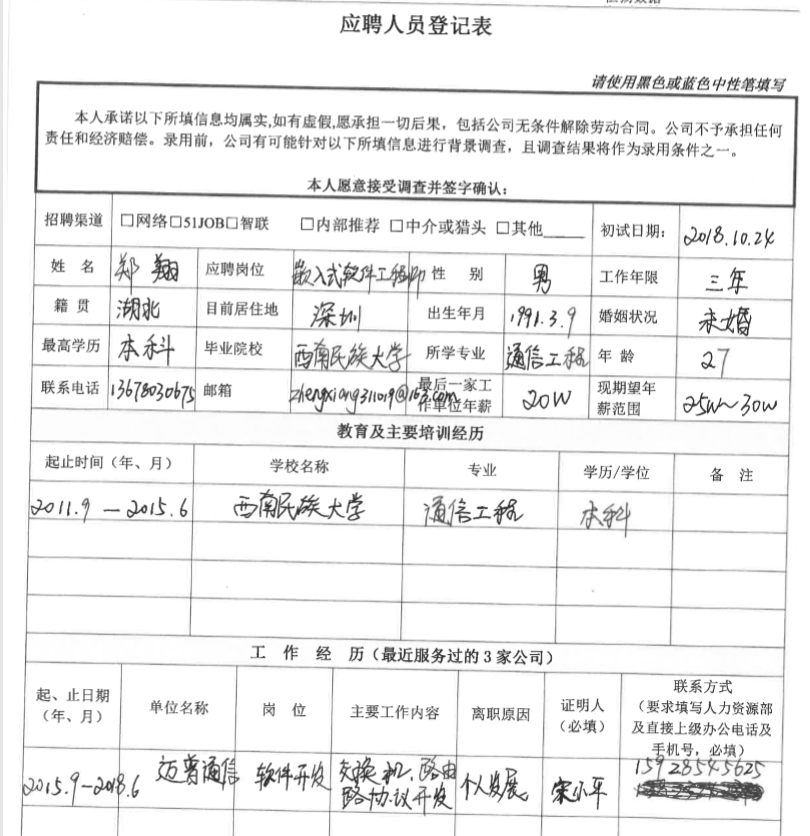 应聘人员登记表
请使用黑色或蓝色中性笔填写
本人承诺以下所填信息均属实,如有虚假,愿承担一切后果，包括公司无条件解除劳动合同。公司不予承担任何
责任和经济赔偿。录用前，公司有可能针对以下所填信息进行背景调查，且调查结果将作为录用条件之一。
本人愿意接受调查并签字确认：
招聘渠道 □网络□51JOB□智联 □内部推荐 □中介或猎头 □其他____ 初试日期： 2018.10.24
姓 名 郑翔 应聘岗位 嵌入式软件工程师 性 别 男 工作年限 三年
籍 贯 湖北 目前居住地 深圳 出生年月 1991.3.9 婚姻状况 未婚
最高学历 本科 毕业院校 西南民族大学 所学专业 通信工程 年 龄 27
联系电话 13678030675 邮箱 zhengxiang311019@163.com 最后一家工作单位年薪 20W 现期望年薪范围 25W~30W
教育及主要培训经历
起止时间（年、月） 学校名称 专业 学历/学位 备 注
2011.9 —2015.6 西南民族大学 通信工程 本科
工 作 经 历（最近服务过的 3 家公司）
起、止日期（年、月） 单位名称 岗 位 主要工作内容 离职原因 证明人（必填） 联系方式（要求填写人力资源部及直接上级办公电话及手机号，必填）
2015.9—2018.6 迈普通信 软件开发 交换机、路由路协议开发 个人发展 宋小平 15928545625